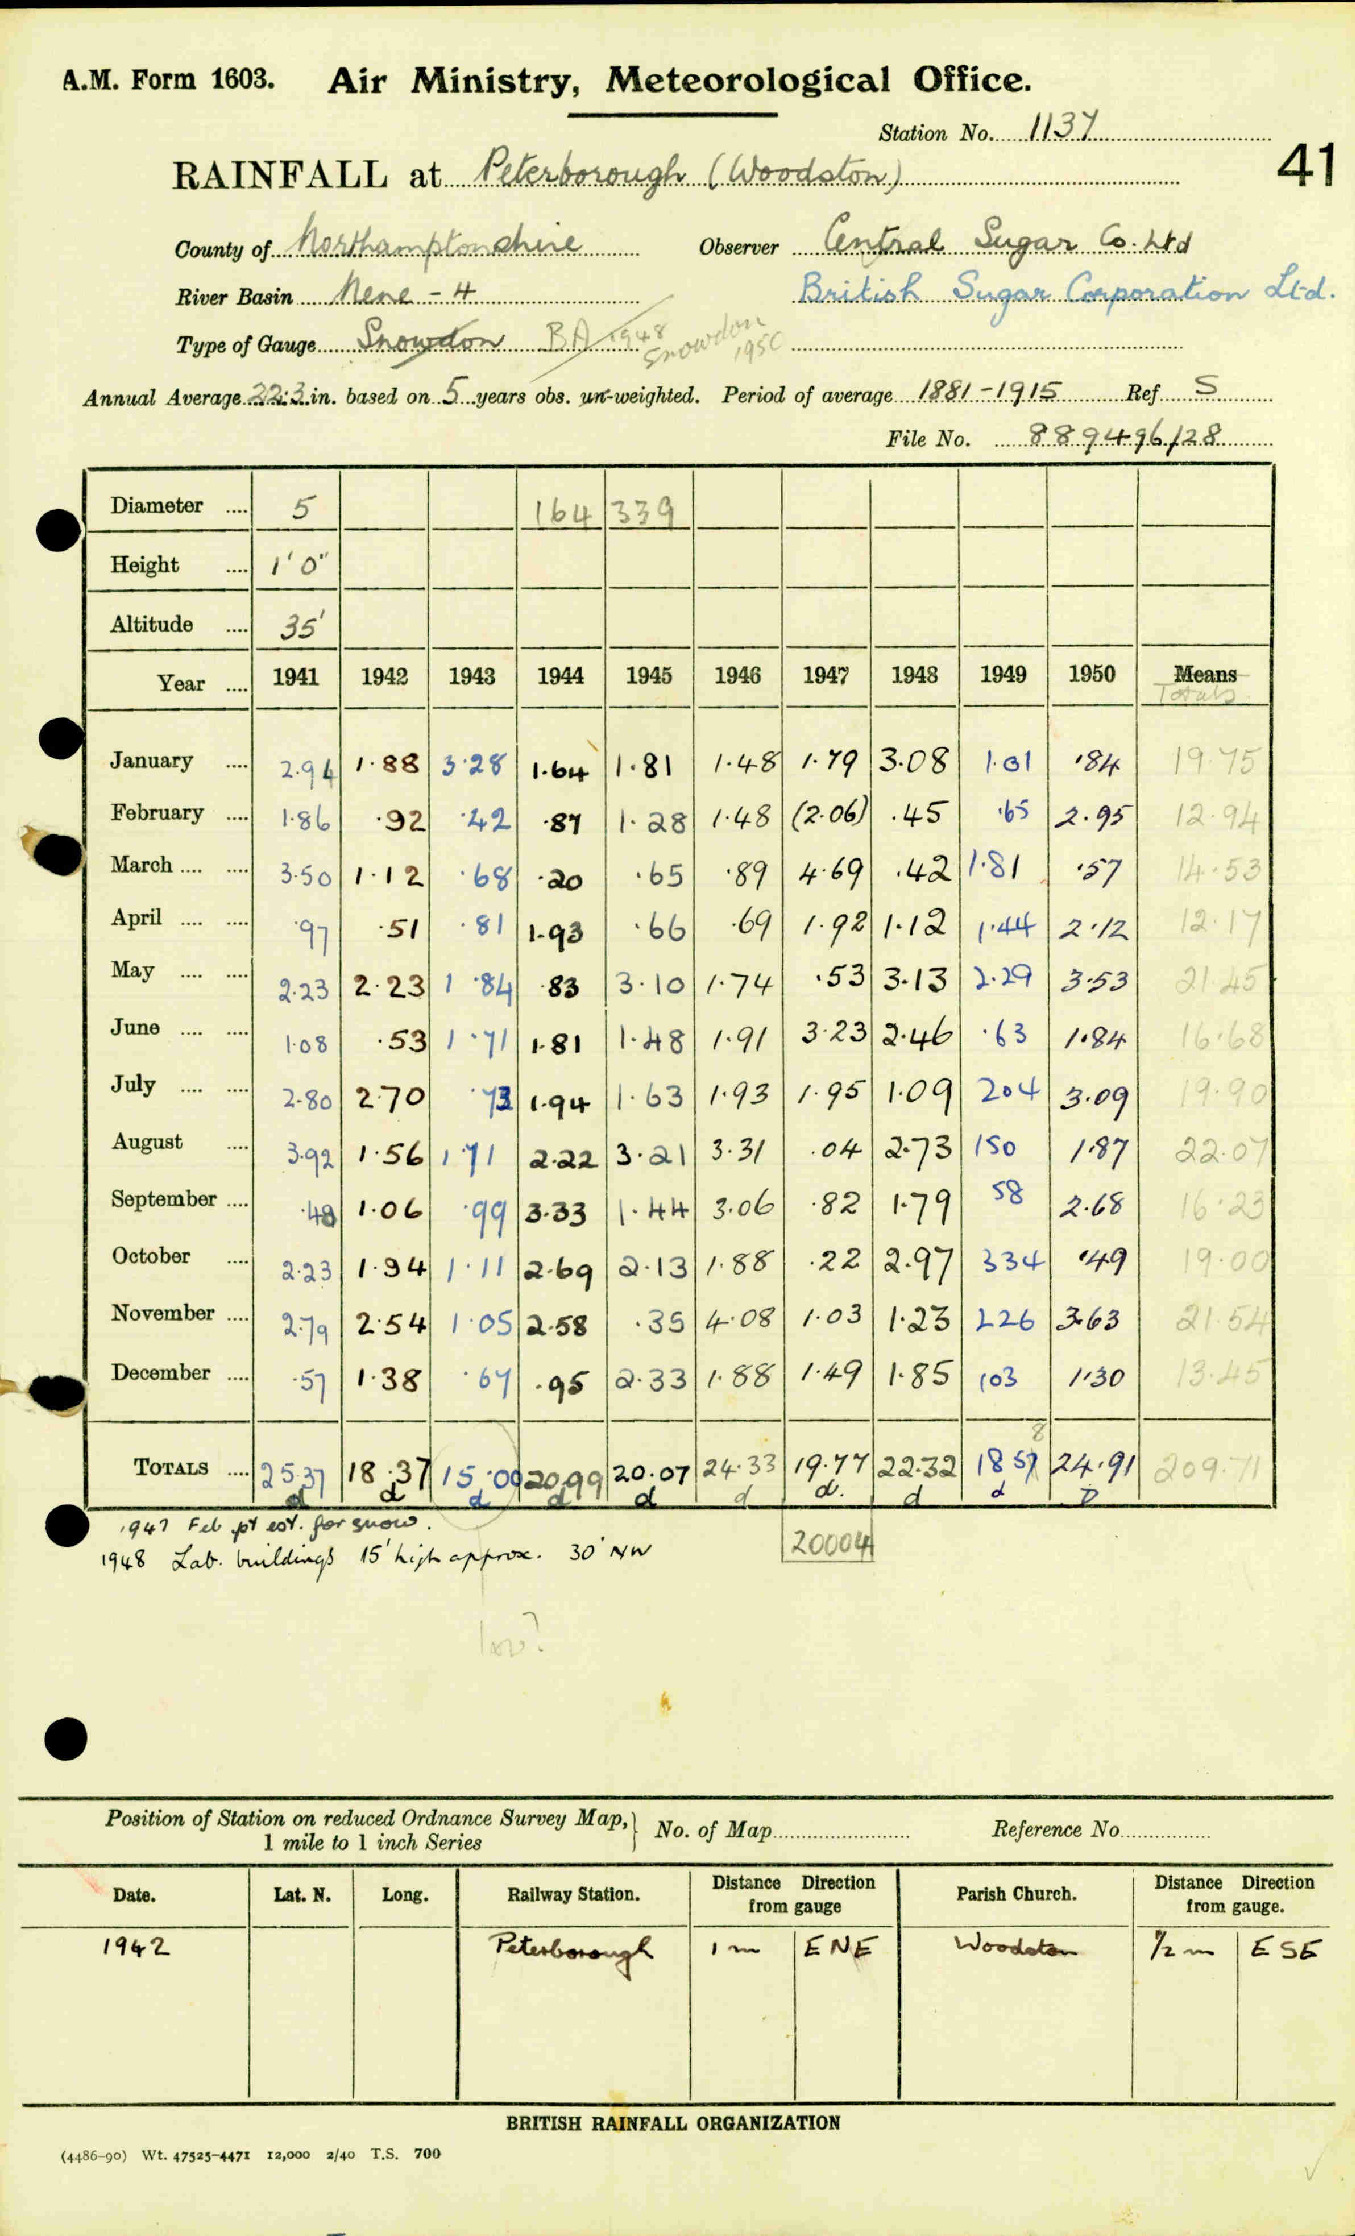 A.M. Form 1603. Air Ministry, Meteorological Office.
Station No. 1137
41
RAINFALL at Peterborough (Woodston)
County of Northamptonshire Observer Central Sugar Co. Ltd
River Basin Nene - 4 British Sugar Corporation Ltd.
Type of Gauge Snowdon BA 1948 Snowdon 1950
Annual Average 22.3 in. based on 5 years obs. un-weighted. Period of average 1881-1915 Ref S
File No. 889496/28
Diameter .... 5 164 339
Height .... 1'0"
Altitude .... 35'
Year .... 1941 1942 1943 1944 1945 1946 1947 1948 1949 1950 Means
Totals
January .... 2.94 1.88 3.28 1.64 1.81 1.48 1.79 3.08 1.01 .84 19.75
February .... 1.86 .92 .42 .87 1.28 1.48 (2.06) .45 .65 2.95 12.94
March .... .... 3.50 1.12 .68 .20 .65 .89 4.69 .42 1.81 .57 14.53
April .... .... .97 .51 .81 1.93 .66 .69 1.92 1.12 1.44 2.12 12.17
May .... .... 2.23 2.23 1.84 .83 3.10 1.74 .53 3.13 2.29 3.53 21.45
June .... .... 1.08 .53 1.71 1.81 1.48 1.91 3.23 2.46 .63 1.84 16.68
July .... .... 2.80 2.70 .73 1.94 1.63 1.93 1.95 1.09 204 3.09 19.90
August .... 3.92 1.56 1.71 2.22 3.21 3.31 .04 2.73 150 1.87 22.07
September .... .48 1.06 .99 3.33 1.44 3.06 .82 1.79 58 2.68 16.23
October .... 2.23 1.94 1.11 2.69 2.13 1.88 .22 2.97 334 .49 19.00
November .... 2.79 2.54 1.05 2.58 .35 4.08 1.03 1.23 226 3.63 21.54
December .... .57 1.38 .67 .95 2.33 1.88 1.49 1.85 103 1.30 13.45
8
TOTALS .... 25.37 18.37 15.00 20.99 20.07 24.33 19.77 22.32 18 57 24.91 209.71
d d d d d d d. d d D
1947 Feb pt est. for snow.
20004
1948 Lab. buildings 15' high approx. 30' NW
low?
Position of Station on reduced Ordnance Survey Map,
1 mile to 1 inch Series
No. of Map Reference No
Date. Lat. N. Long. Railway Station. Distance Direction from gauge Parish Church. Distance Direction from gauge.
1942 Peterborough 1 m ENE Woodston 1/2 m ESE
BRITISH RAINFALL ORGANIZATION
(4486-90) Wt. 47525-4471 12,000 2/40 T.S. 700